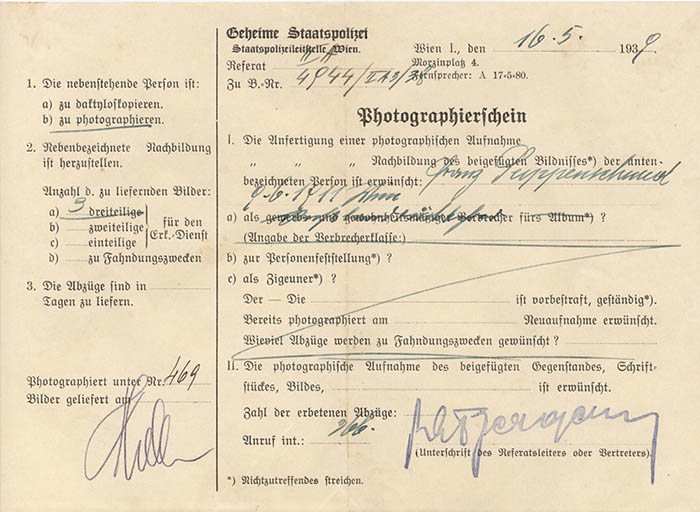 1. Die nebenstehende Person ist:
a) zu daktyloskopieren.
b) zu photographieren.
2. Nebenbezeichnete Nachbildung
ist herzustellen.
Anzahl d. zu liefernden Bilder:
a) 3 dreiteilige
b) zweiteilige
c) einteilige
für den
Erk.-Dienst
d) zu Fahndungszwecken
3. Die Abzüge sind in
Tagen zu liefern.
Photographiert unter Nr. 469
Bilder geliefert am
Geheime Staatspolizei
Staatspolizeileitstelle Wien.
Referat II A
Zu B.-Nr. 4944/II A 3/38
Wien I., den 16.5. 1939
Morzinplatz 4.
Fernsprecher: A 17-5-80.
Photographierschein
I. Die Anfertigung einer photographischen Aufnahme
„ „ „ Nachbildung des beigefügten Bildnisses*) der unten-
bezeichneten Person ist erwünscht: Franz
a) als gewerbs- und gewohnheitsmäßiger Verbrecher fürs Album*) ?
(Angabe der Verbrecherklasse:)
b) zur Personenfeststellung*) ?
c) als Zigeuner*) ?
Der — Die ist vorbestraft, geständig*).
Bereits photographiert am Neuaufnahme erwünscht.
Wieviel Abzüge werden zu Fahndungszwecken gewünscht ?
II. Die photographische Aufnahme des beigefügten Gegenstandes, Schrift-
stückes, Bildes, ist erwünscht.
Zahl der erbetenen Abzüge:
Anruf int.: 266.
(Unterschrift des Referatsleiters oder Vertreters).
*) Nichtzutreffendes streichen.